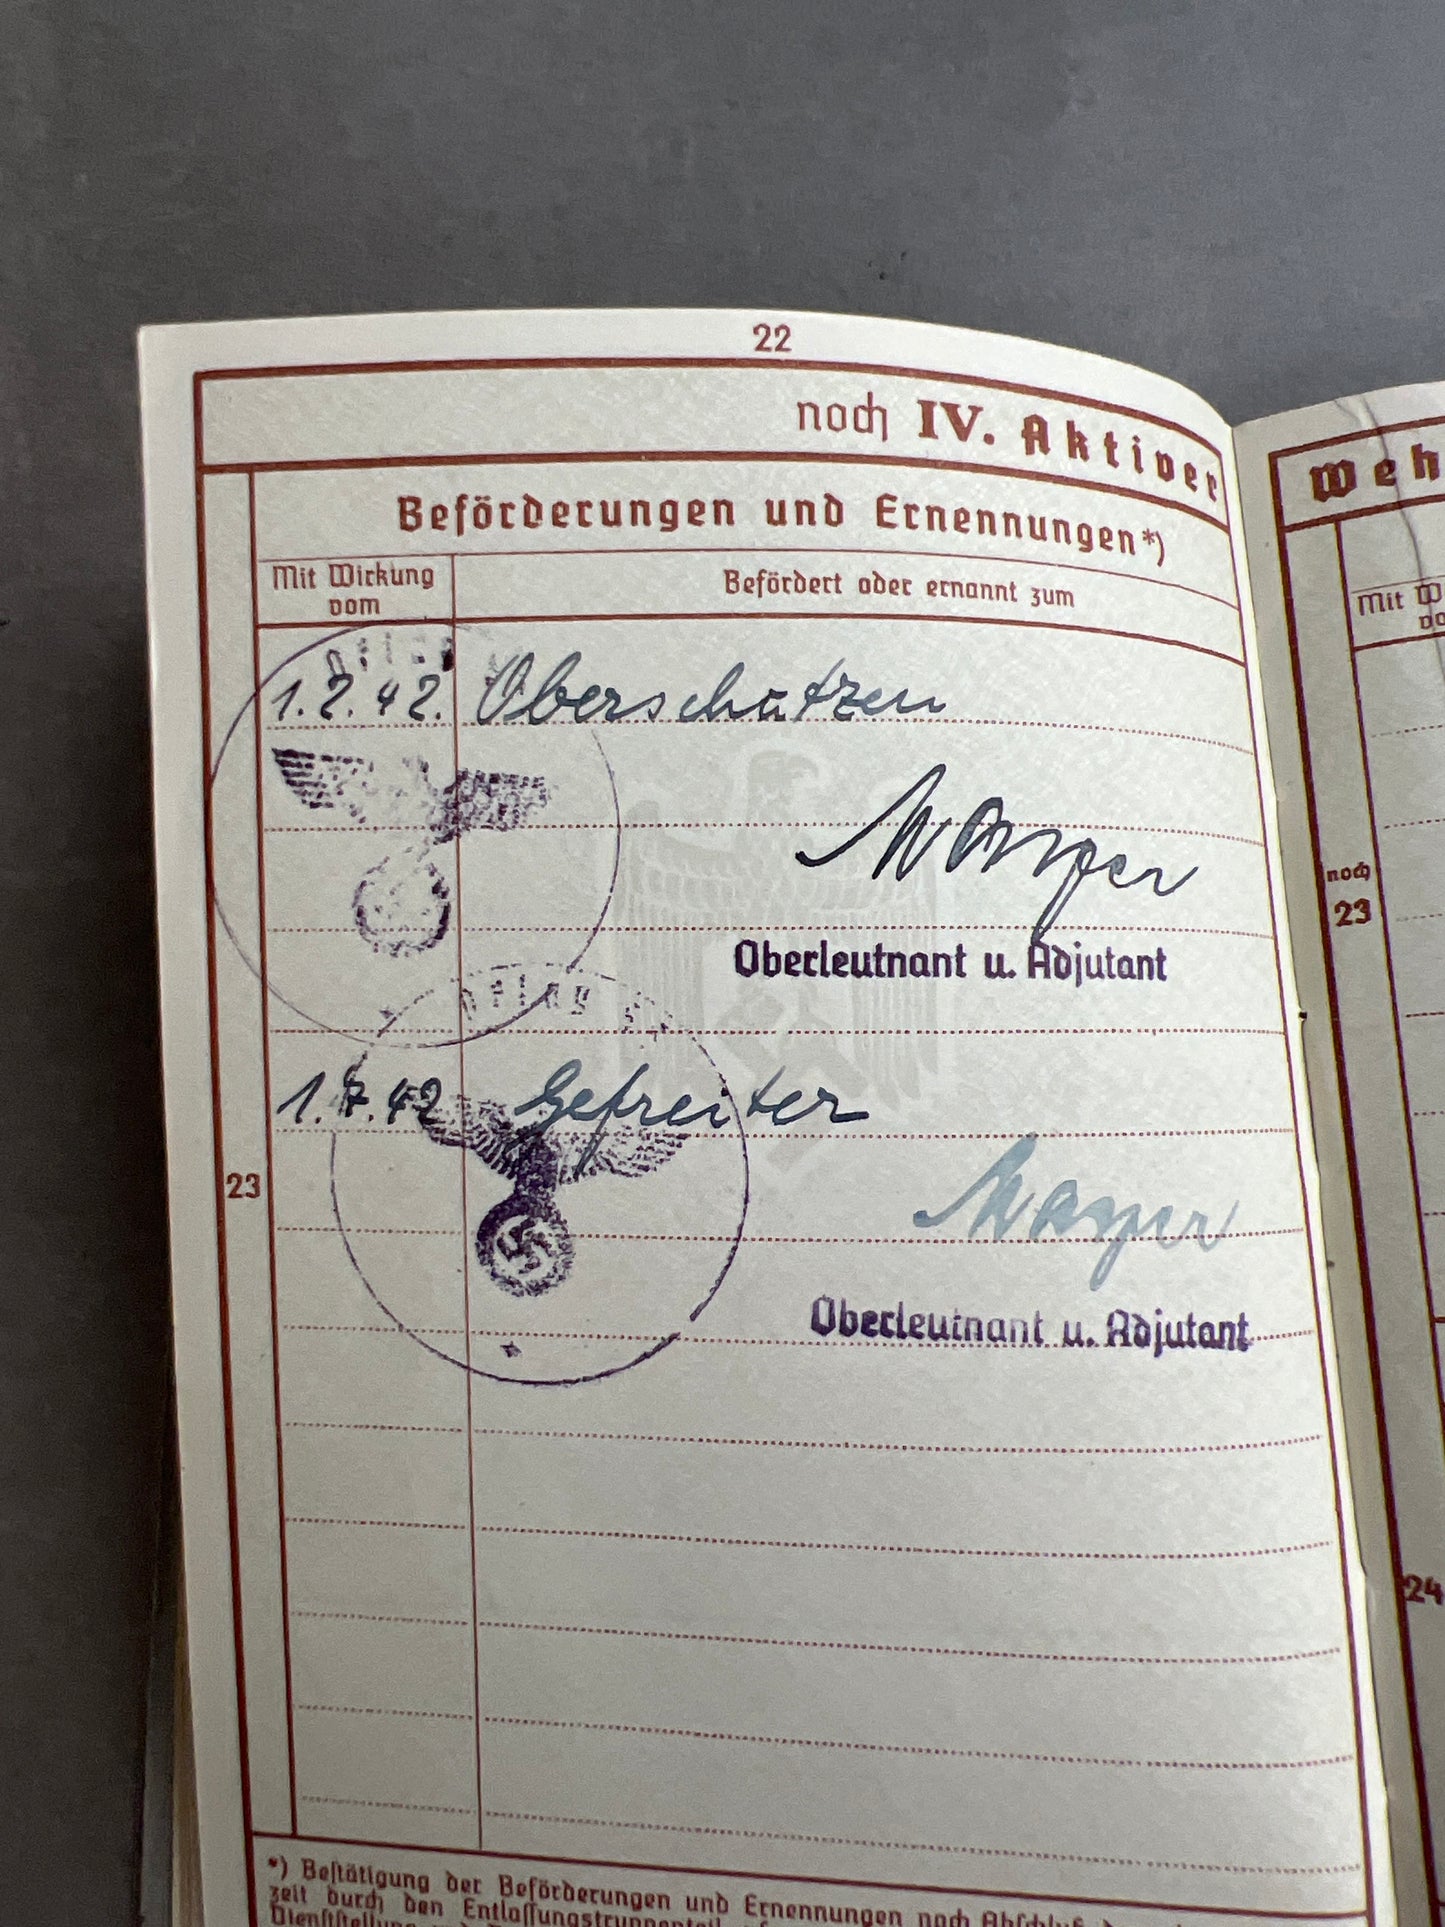 22
noch IV. Aktiver
Beförderungen und Ernennungen*)
Mit Wirkung
vom
Befördert oder ernannt zum
1.2.42. Oberschützen
Mayer
Oberleutnant u. Adjutant
1.7.42 Gefreiter
23
Mayer
Oberleutnant u. Adjutant
*) Bestätigung der Beförderungen und Ernennungen nach Abschluß
zeit durch den Entlassungstruppenteil
Dienststellung
Weh
Mit
noch
23
24